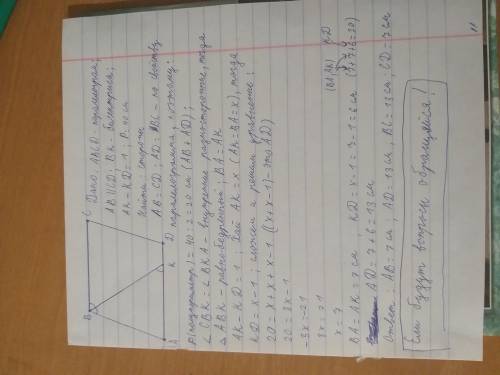 B
C
A
K
D
Дано: ABCD - параллеграм;
AB||CD; BK - биссектриса;
AK - KD = 1; P = 40 см
Найти: стороны
AB = CD; AD = BC - по свойству
параллелограмма, поэтому:
P(полупериметр) = 40 : 2 = 20 см (AB + AD);
∠CBK = ∠BKA - внутренние разносторонние, тогда
△ABK - равнобедренный; BA = AK
AK - KD = 1; Пусть AK = x (AK = BA = x), тогда
KD = x - 1; сложим и решим уравнение:
20 = x + x + x - 1 ((x + x - 1) - это AD)
20 = 3x - 1
-3x = -21
3x = 21
x = 7
(BA, AK) KD
BA = AK = 7 см; KD = x - 1 = 7 - 1 = 6 см (7+7+6=20)
AD = 7 + 6 = 13 см
Ответ: AB = 7 см; AD = 13 см, BC = 13 см; CD = 7 см
Если будут вопросы обращайся!